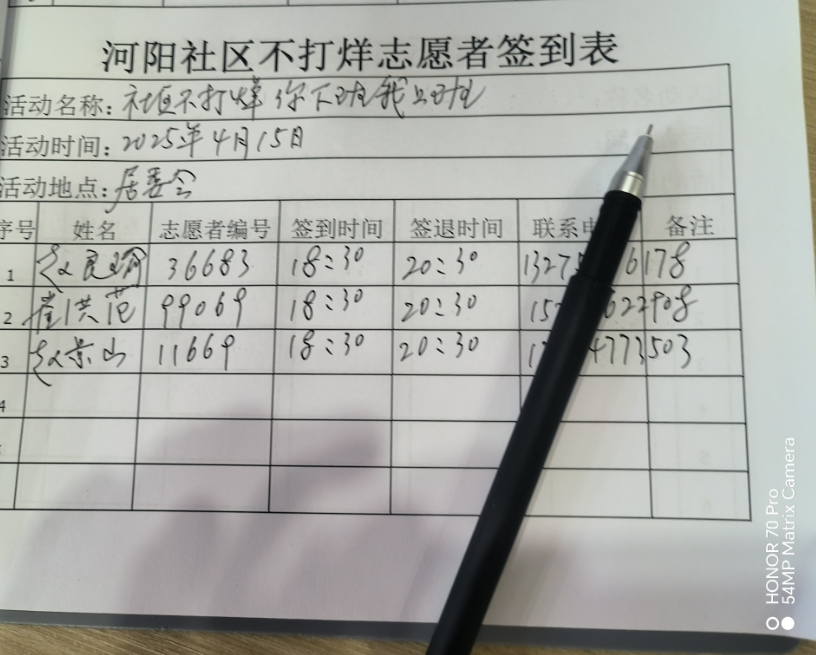 河阳社区不打烊志愿者签到表
活动名称: 社区不打烊 你下班我上班
活动时间: 2025年4月15日
活动地点: 居委会
序号 姓名 志愿者编号 签到时间 签退时间 联系电 备注
1 赵 36683 18:30 20:30 1327 6178
2 崔洪范 99069 18:30 20:30 15 622908
3 赵景山 11669 18:30 20:30 1 4773503
4
HONOR 70 Pro
54MP Matrix Camera